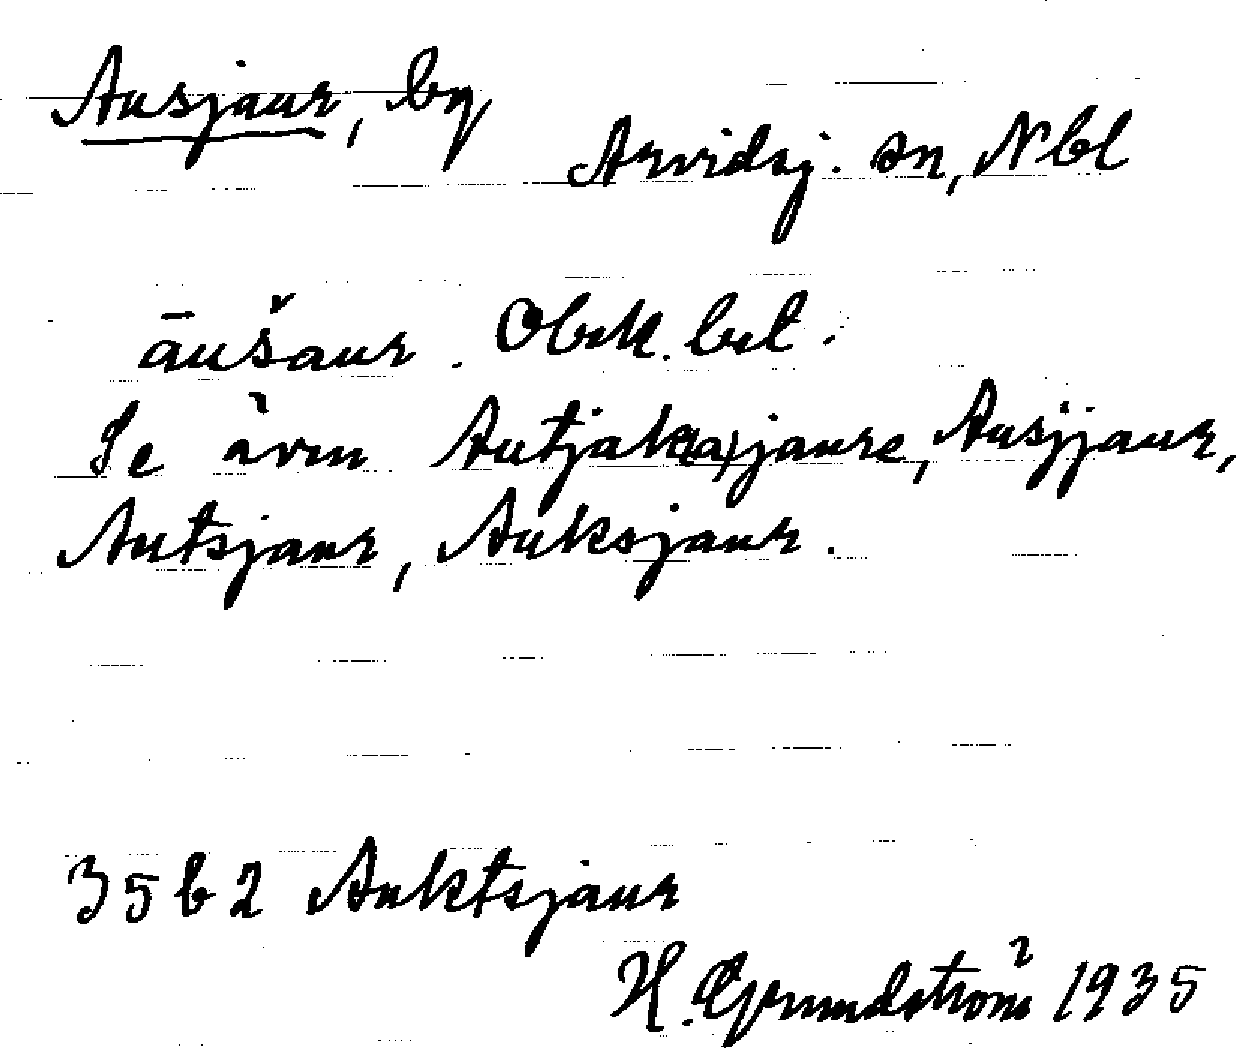 Ausjaur, by
Arvidsj. sn, Nbl
āušaur. Obek. bet.
Se även Autjak(a)jaure, Ausjjaur,
Autsjaur, Auksjaur.
35 b 2 Auktsjaur
H. Grundström 1935